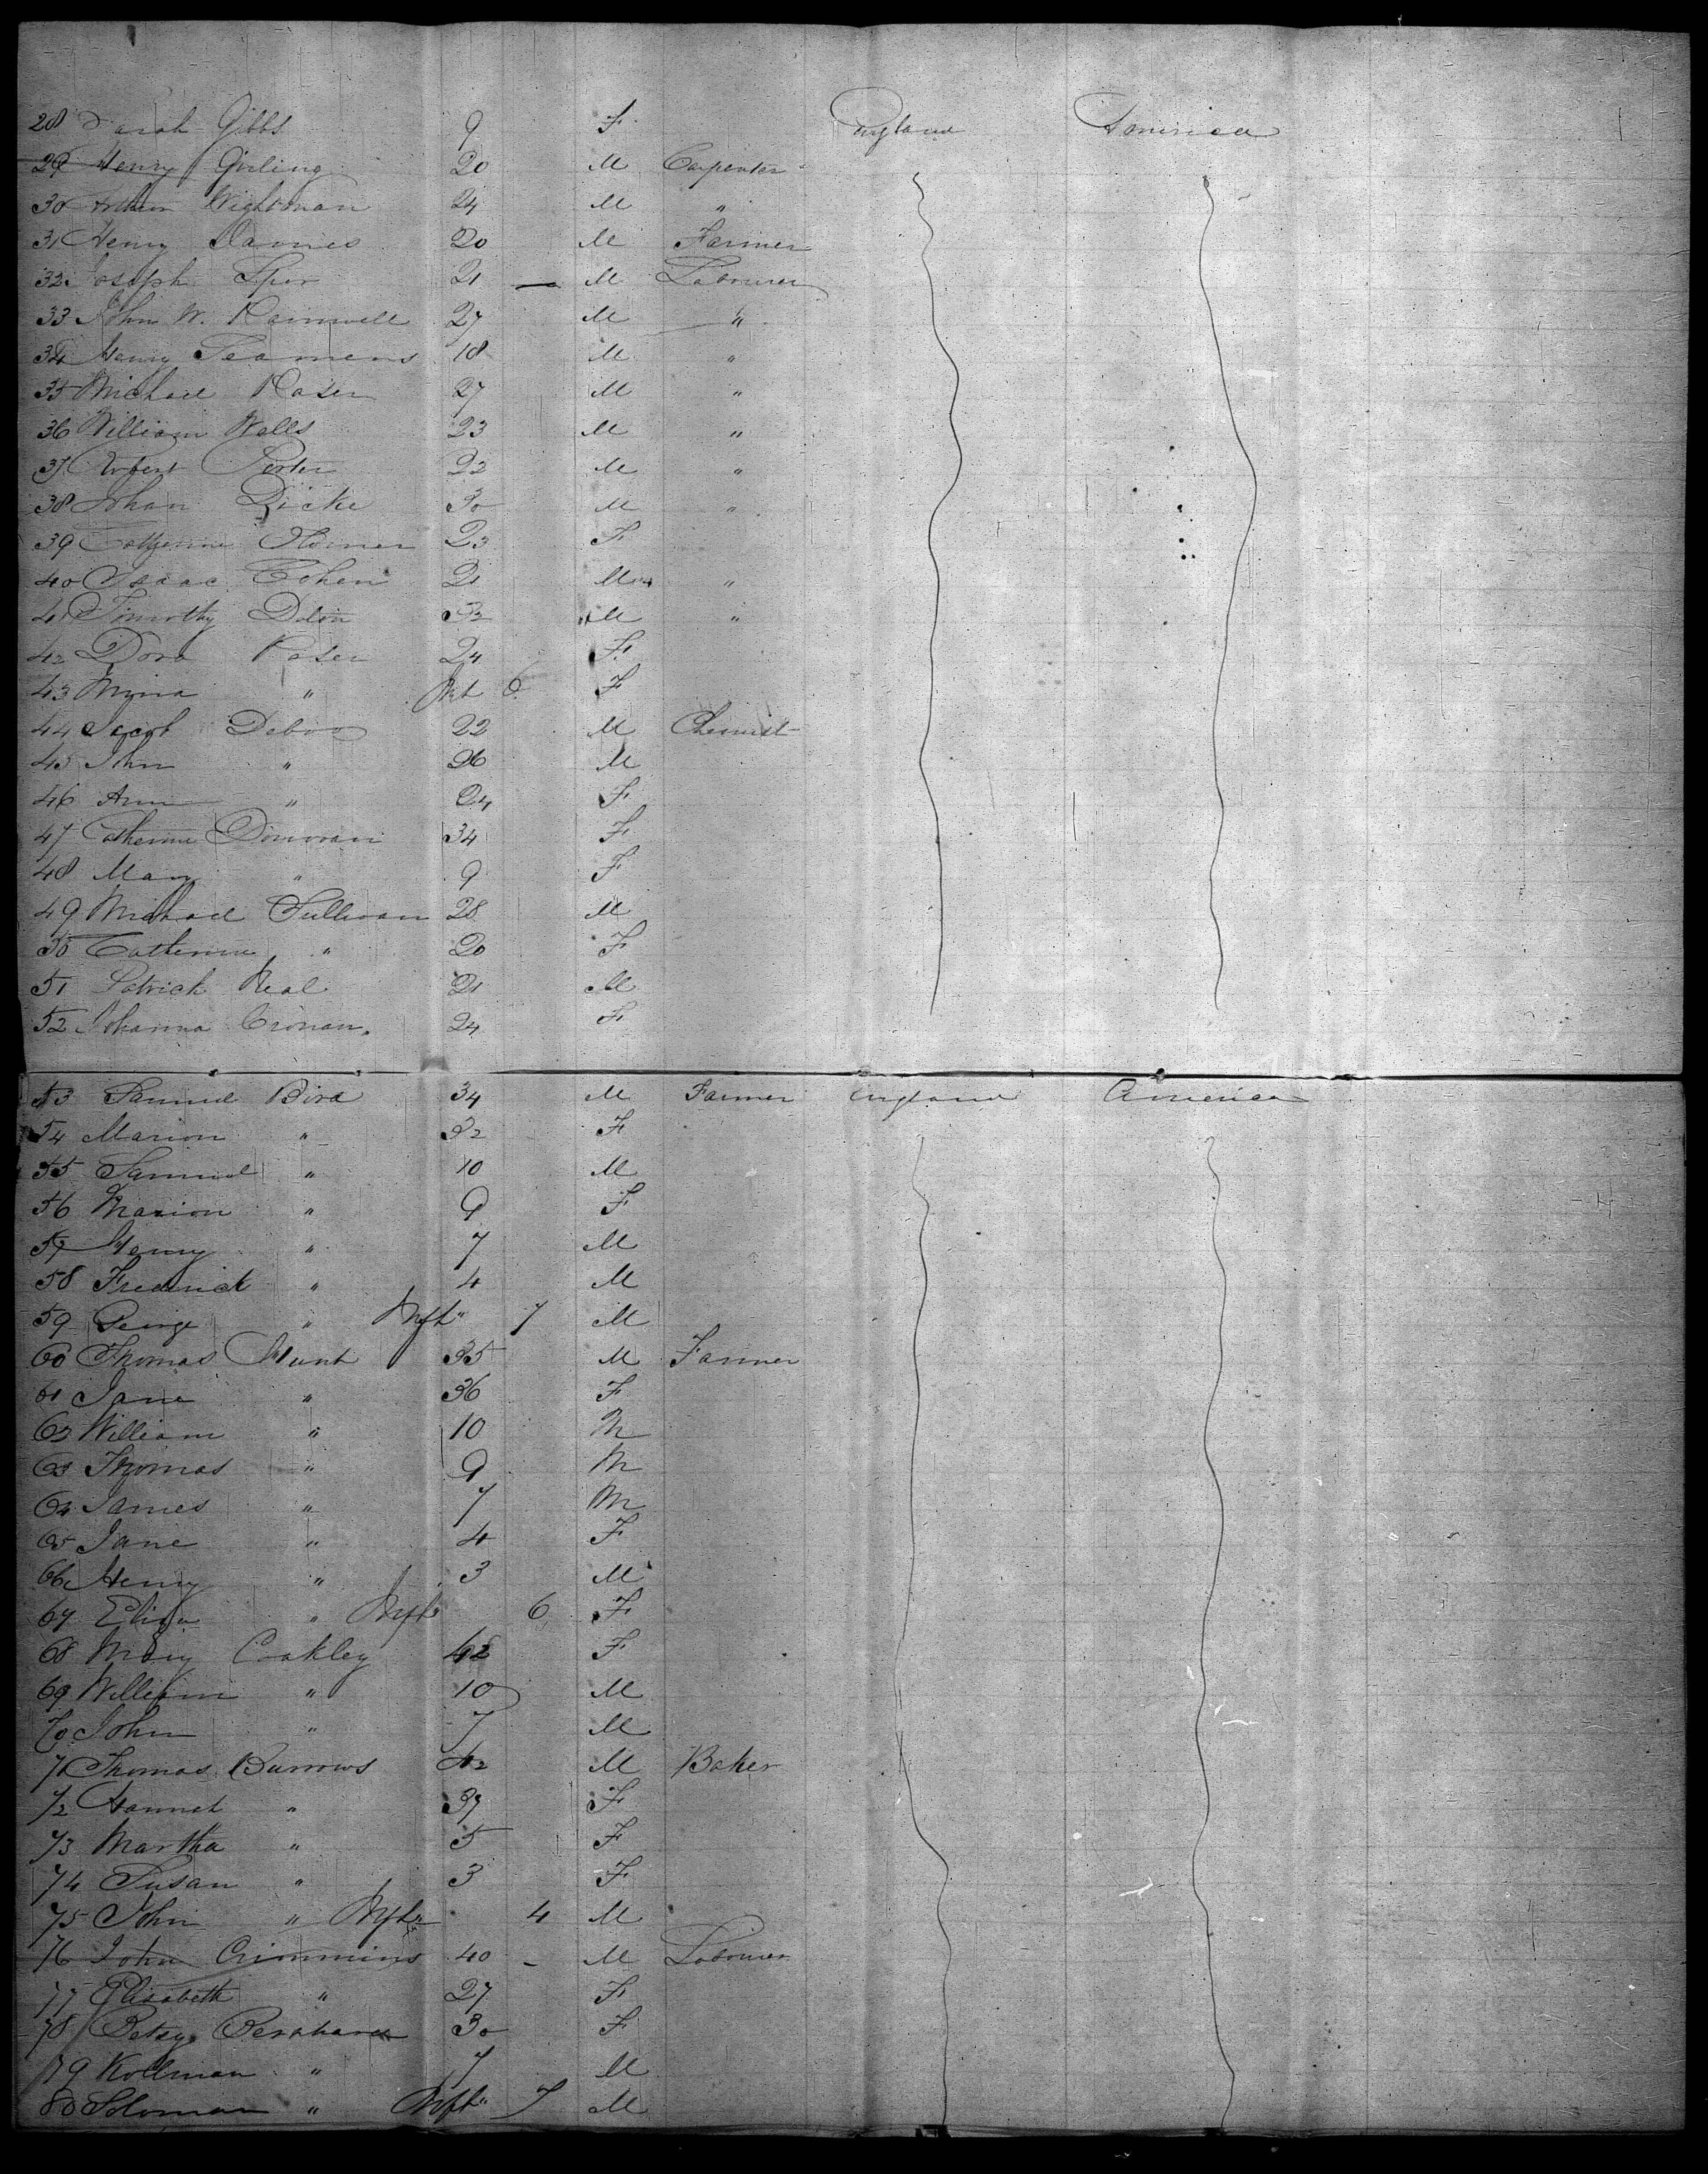 28 Sarah Gibbs 9 F England America
29 Henry Girling 20 M Carpenter
30 Arthur Wightman 24 M "
31 Henry Daines 20 M Farmer
32 Joseph 21 — M Labourer
33 John W. Ramwell 27 M "
34 Henry Seamens 18 M "
35 Michael Rosen 27 M "
36 William Wells 23 M "
37 Robert Porter 22 M "
38 Johan Dicke 30 M "
39 Catherine 23 F
40 Isaac Cohen 21 M "
41 Timothy 32 M "
42 Dora Rosen 24 F
43 Mina " Inft 6 F
44 Jacob Deboo 22 M Chemist
45 John " 26 M
46 Ann " 24 F
47 Catherine Donovan 34 F
48 Mary " 9 F
49 Michael Sullivan 28 M
50 Catherine " 20 F
51 Patrick Neal 21 M
52 Johanna Cronan 24 F
53 Samuel Bird 34 M Farmer England America
54 Marion " 32 F
55 Samuel " 10 M
56 Marion " 9 F
57 Henry " 7 M
58 Fredrick " 4 M
59 George " Inft" 7 M
60 Thomas Hunt 35 M Farmer
61 Jane " 36 F
62 William " 10 M
63 Thomas " 9 M
64 James " 7 M
65 Jane " 4 F
66 Henry " 3 M
67 Eliza " Inft 6 F
68 Mary Coakley 42 F
69 William " 10 M
70 John " 7 M
71 Thomas Burrows 42 M Baker
72 Hannah " 37 F
73 Martha " 5 F
74 Susan " 3 F
75 John " Inft 4 M
76 John Crimmins 40 - M Labourer
77 Elisabeth " 27 F
78 Betsy 30 F
79 Kolman " 7 M
80 Soloman " Inft" 7 M